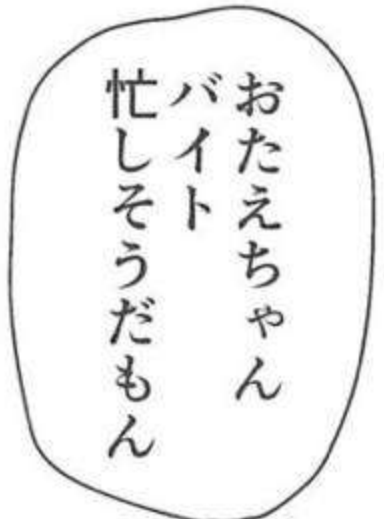 おたえちゃん
バイト
忙しそうだもん